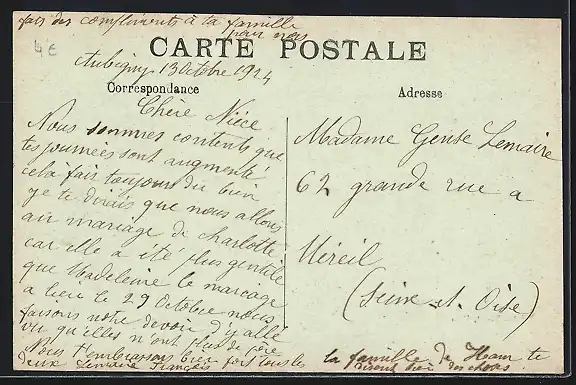 fais des compliments à la famille
pour nous
4€
CARTE POSTALE
Aubigny 13 Octobre 1924
Correspondance
Adresse
Chère Nièce
Nous sommes contents que
tes journées sont augmenté
cela fait toujours du bien
je te dirais que nous allons
au mariage de Charlotte
car elle a été plus gentille
que Madeleine le mariage
a lieu le 29 Octobre nous
faisons notre devoir d'y allé
vu qu'elles n'ont plus de père
Nous t'embrassons bien fort tous les
deux Lemaire François
Madame Lemaire
62 grande rue a
Meréil
(Seine et Oise)
la famille de Ham te
disent bien des choses